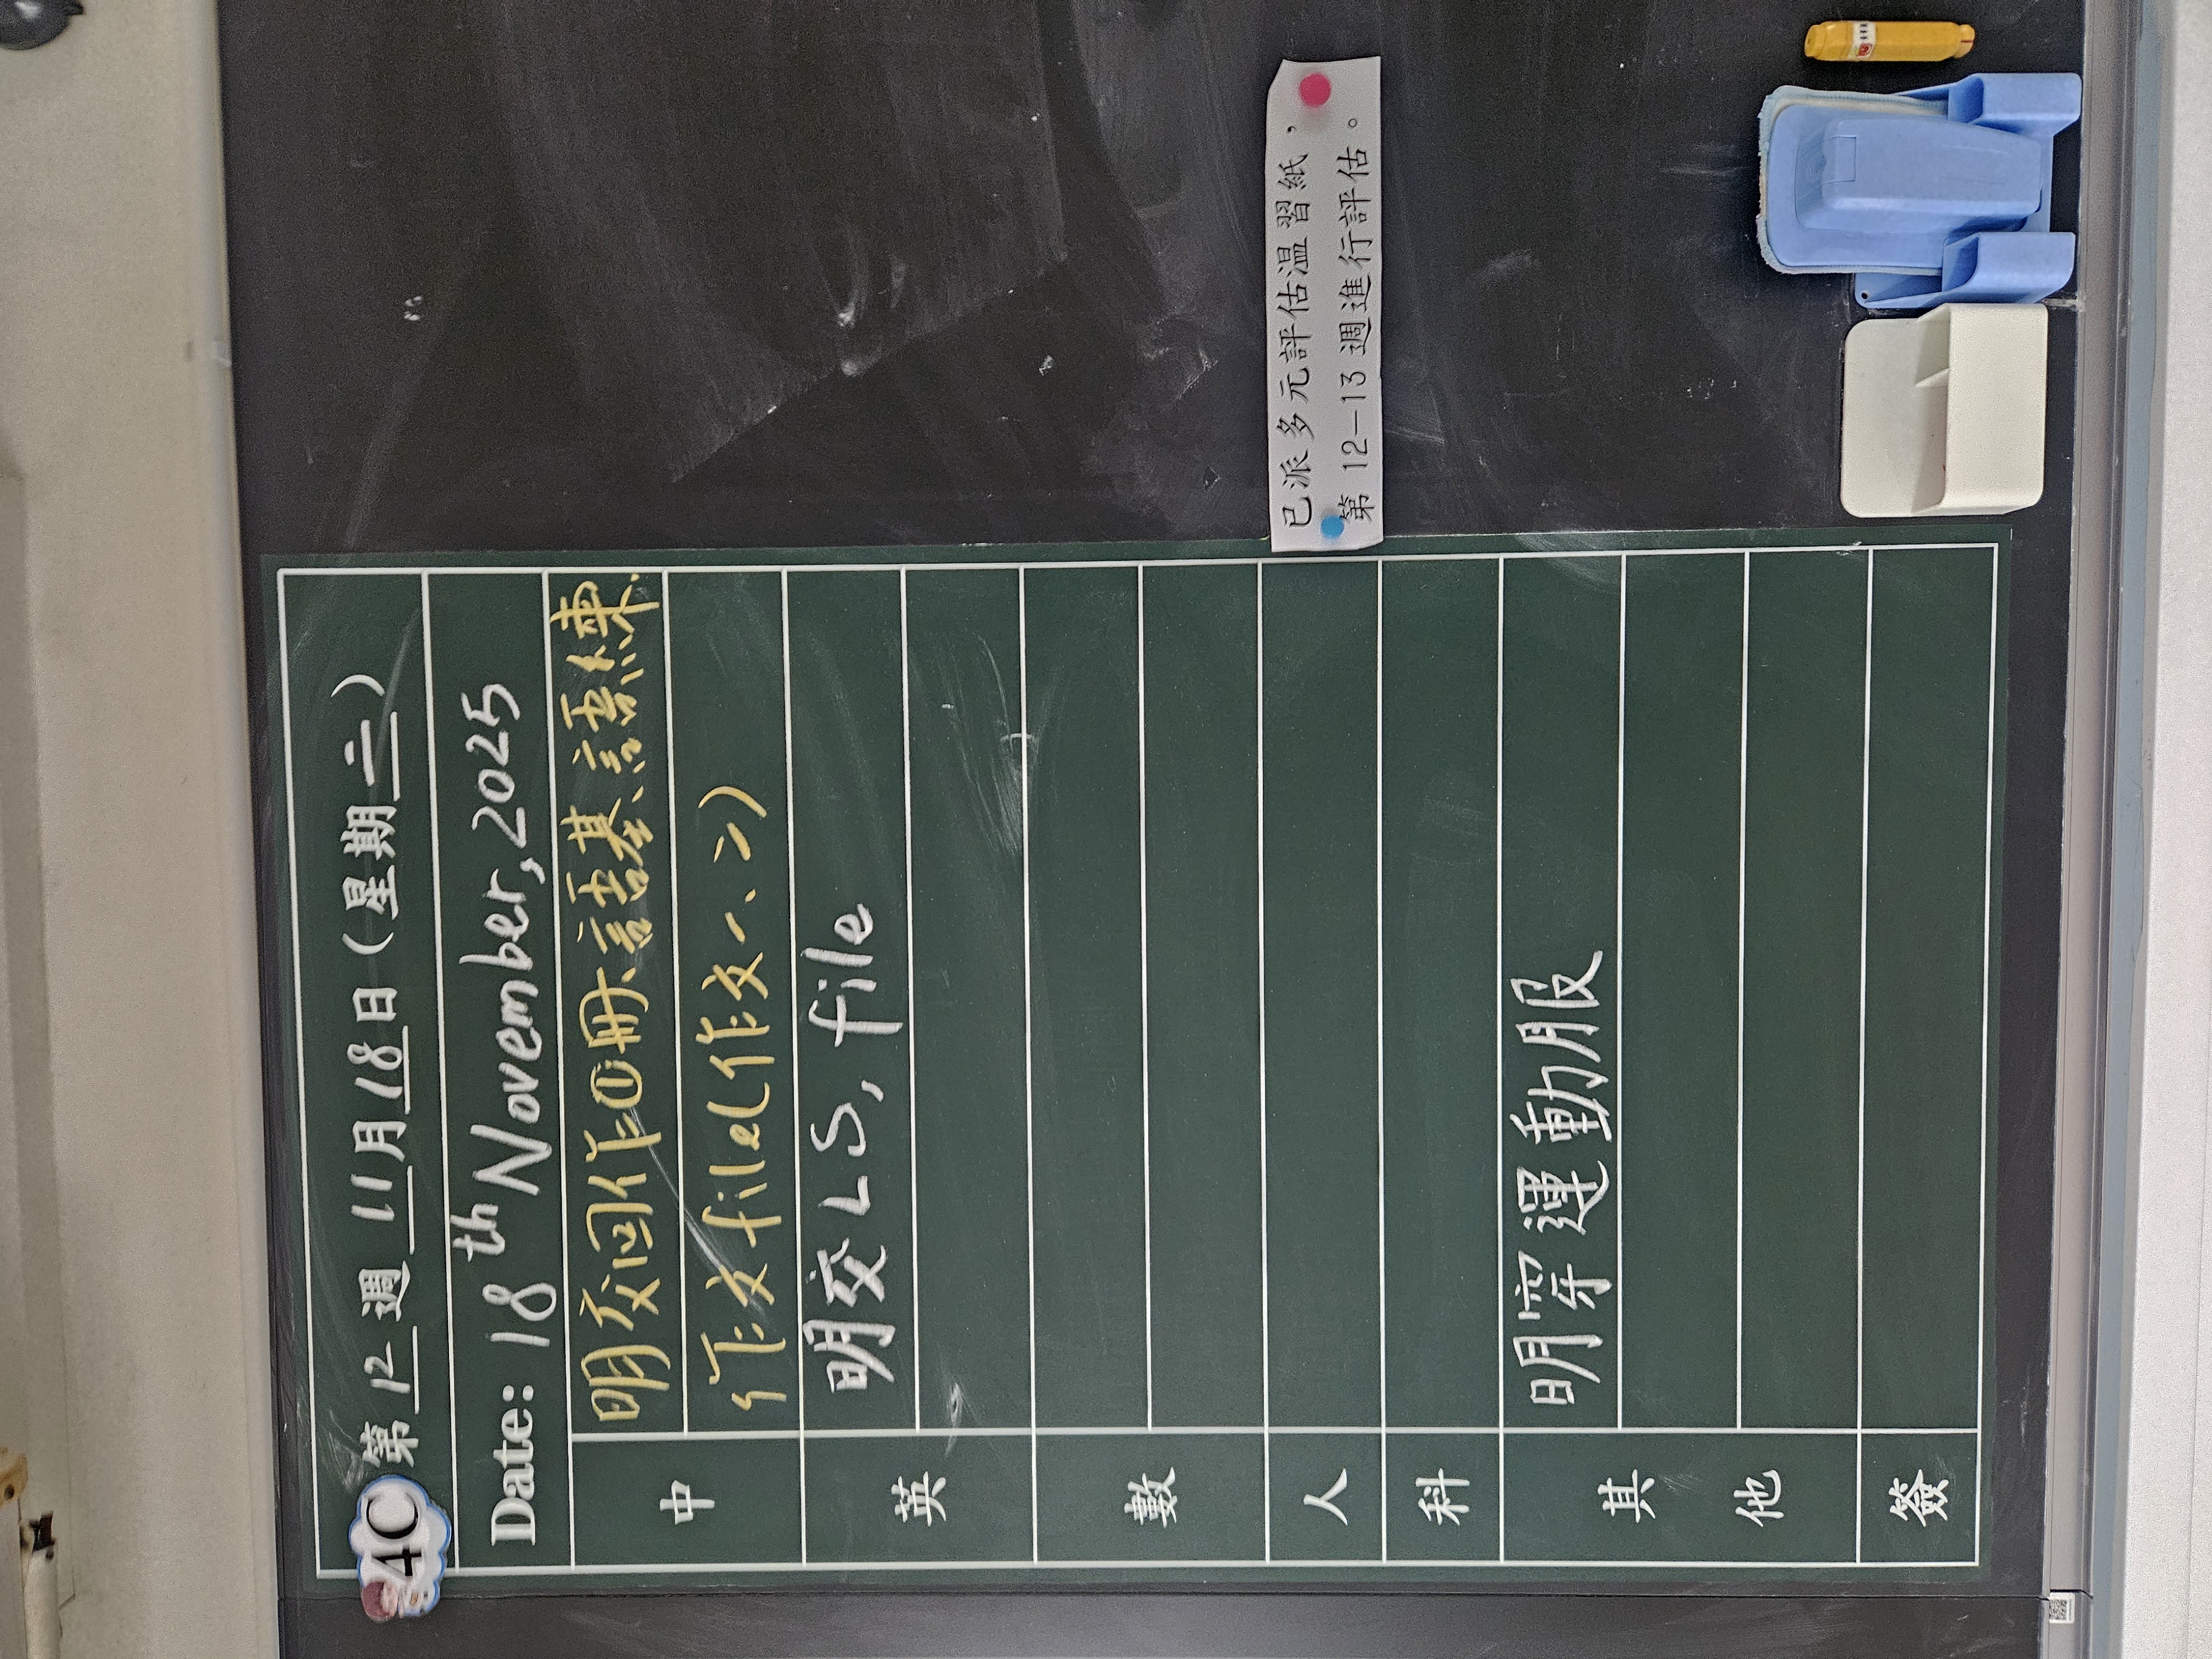 4C
第 12 週 11月18日(星期二)
Date: 18th November, 2025
中
明交回作①冊、語基、語練、
作文file(作文一、二)
英
明交LS, file
數
人
科
其他
明穿運動服
簽
已派多元評估溫習紙,
第 12-13 週進行評估。